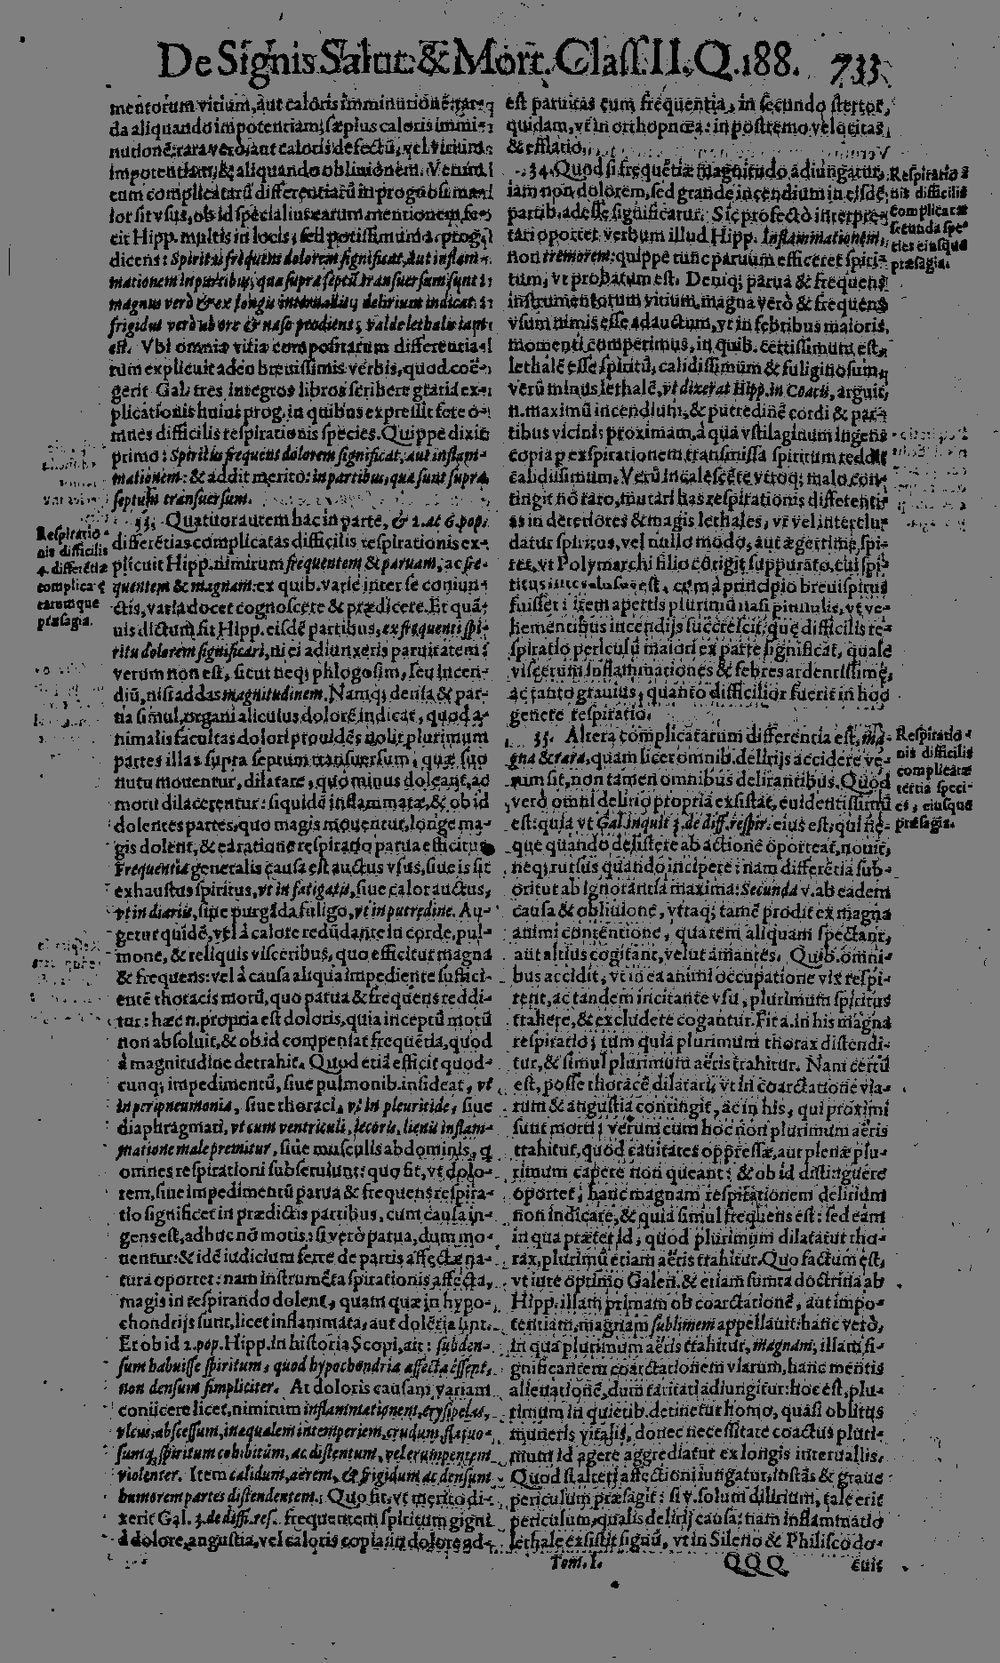 De Signis Salut. & Mort. Class. II. Q. 188. 733
mentorum vitium, aut caloris imminutionē: ra-
da aliquando impotentiam, sæpius caloris immi-
nutionē: rara verò, aut caloris defectū, vel virium
impotentiam, & aliquando oblivionem. Verum
cum complicatarū differentiarū in prognosi ma-
ior sit vsus, ob id specialius earum mentionem fe-
cit Hipp. multis in locis, sed potissimum 1. prog.
dicens: Spiritus frequens dolorem significat, aut inflam-
mationem in partibus, quæ supra septū transuersum sunt:
magnus verò & ex longis interuallis, delirium indicat:
frigidus verò ab ore & naso prodiens, valde lethalis iam
est. Vbi omnia vitia compositarum differentia-
rum explicuit adeo breuissimis verbis, quod coē-
gerit Gal. tres integros libros scribere gratia ex-
plicationis huius prog. in quibus expressit fere o-
mnes difficilis respirationis species. Quippe dixit
primo: Spiritus frequens dolorem significat, aut inflam-
mationem: & addit merito: in partibus, quæ sunt supra
septum transuersum.
33. Quatuor autem hac in parte, & 2. at 6. pop.
differētias complicatas difficilis respirationis ex-
plicuit Hipp. nimirum frequentem & paruam, ac fre-
quentem & magnam: ex quib. variè inter se coniun-
ctis, varia docet cognoscere & prædicere. Et quā-
uis dictum sit Hipp. eisdē partibus, ex frequenti spi-
ritu dolorem significari, ni ei adiunxeris paruitatem,
verum non est, sicut neq; phlogosim, seu incen-
diū, nisi addas magnitudinem. Namq; densa & par-
ua simul, organi alicuius dolorē indicat, quod a-
nimalis facultas dolori prouidēs nolit plurimum
partes illas supra septum transuersum, quæ suo
nutu mouentur, dilatare, quo minus doleant, ac
motu dilacerentur: siquidē inflammatæ, & ob id
dolentes partes, quo magis mouentur, longe ma-
gis dolent, & ea ratione respiratio parua efficitur.
Frequentia generalis causa est auctus vsus, siue is sit
exhaustus spiritus, vt in fatigatis, siue calor auctus,
vt in diariis, siue purgāda fuligo, vt in putredine. Au-
getur quidē, vel à calore redūdante in corde, pul-
mone, & reliquis visceribus, quo efficitur magna
& frequens: vel à causa aliqua impediente suffici-
entē thoracis motū, quo parua & frequens reddi-
tur: hæc n. propria est doloris, quia inceptū motū
non absoluit, & ob id compensat frequētia, quod
à magnitudine detrahit. Quod etiā efficit quod-
cunq; impedimentū, siue pulmonib. insideat, vt
in peripneumonia, siue thoraci, vt in pleuritide, siue
diaphragmati, vt cum ventriculi, iecoris, lienis inflam-
matione male premitur, siue musculis abdominis, q
omnes respirationi subseruiunt: quo fit, vt dolo-
rem, siue impedimentū parua & frequens respira-
tio significet in prædictis partibus, cum causa in-
gens est, adhuc nō motis: si verò parua, dum mo-
uentur: & idē iudicium ferre de partis affectæ na-
tura oportet: nam instrumēta spirationis affecta,
magis in respirando dolent, quam quæ in hypo-
chondrijs sunt, licet inflammata, aut dolētia sint.
Et ob id 2. pop. Hipp. in historia Scopi, ait: subden-
sum habuisse spiritum, quod hypochondria affecta essent,
non densum simpliciter. At doloris causam variam
conijcere licet, nimirum inflammationem, erysipelas,
vlcus, abscessum, inæqualem intemperiem, crudum, flatuo-
sumq; spiritum cohibitum, ac distentum, vel erumpentem
violenter. Item calidum, aerem, & frigidum ac densum
humorem partes distendentem. Quo fit, vt merito di-
xerit Gal. 3. de diffi. res. frequentem spiritum gigni
à dolore, angustia, vel caloris copia: in dolore ad-
est paruitas cum frequentia, in secundo stertor
quidam, vt in orthopnœa: in postremo velocitas,
& efflatio.
34. Quod si frequētiæ magnitudo adiungatur,
iam non dolorem, sed grande incendium in eisdē
partib. adesse significatur. Sic profectò interpre-
tari oportet verbum illud Hipp. Inflammationem,
non tremorem: quippe tunc paruum efficeret spiri-
tum, vt probatum est. Deniq; parua & frequens
instrumentorum vitium, magna verò & frequens
vsum nimis esse adauctum, vt in febribus maioris
momenti comperimus, in quib. certissimum est,
lethalē esse spiritū, calidissimum & fuliginosum,
verū minus lethalē, vt dixerat Hipp. in Coacis, arguit
n. maximū incendium, & putredinē cordi & par-
tibus vicinis proximam, à qua vstilaginum ingens
copia p exspirationem transmissa spiritum reddit
calidissimum. Verū incalescēte vtroq; malo con-
tingit nō raro, mutari has respirationis differenti-
as in deteriores & magis lethales, vt vel intercur-
datur spiritus, vel nullo modo, aut ægerrime spi-
ret, vt Polymarchi filio cōtigit suppurato, cui spi-
ritus est, cum à principio breuispirus
fuisset: item apertis plurimū nasi pinnulis, vt ve-
hementibus incendijs succrescit: quę difficilis re-
spiratio periculū maiori ex parte significat, quale
viscerum inflammationes & febres ardentissimę,
ac tanto grauius, quanto difficilior fuerit in hoc
genere respiratio.
35. Altera complicatarum differentia est, ma-
gna & rara, quam licet omnib. delirijs accidere ve-
rum sit, non tamen omnibus delirantibus. Quod
verò omni delirio propria existat, euidētissimū
est: quia vt Gal. inquit 3. de diff. respir. eius est, qui ne-
que quando desistere ab actionē oporteat, nouit,
neq; rursus quando incipere: nam differētia sub-
oritur ab ignorantia maxima: Secunda v. ab eadem
causa & obliuionē, vtraq; tamē prodit ex magna
animi contentione, qua rem aliquam spectant,
aut altius cogitant, velut amantes. Quib. omni-
bus accidit, vt in ea animi occupatione vix respi-
rent, ac tandem incitante vsu, plurimum spiritus
trahere, & excludere cogantur. Fit a. in his magna
respiratio; tum quia plurimum thorax distendi-
tur, & simul plurimum aëris trahitur. Nam certū
est, posse thoracē dilatari, vt in coarctatione via-
rum & angustia contingit, ac in his, qui proximi
sunt morti; verum cum hoc non plurimum aëris
trahitur, quod cauitates oppressæ, aut plenæ plu-
rimum capere non queant: & ob id distinguere
oportet, hanc magnam respirationem delirium
non indicare, & quia simul frequens est: sed eam
in qua præter id, quod plurimum dilatatur tho-
rax, plurimū etiam aëris trahitur. Quo factum est,
vt iure optimo Galen. & etiam sumta doctrina ab
Hipp. illam primam ob coarctationē, aut impo-
tentiam, magnam sublimem appellauit: hanc verò,
in qua plurimum aëris trahitur, magnam, illam si-
gnificantem coarctationem viarum, hanc mentis
alienationē, dum raritati adiungitur: hoc est, plu-
rimum in quietib. detinetur homo, quasi oblitus
muneris vitalis, donec necessitate coactus pluri-
mum id agere aggrediatur ex longis interuallis.
Quod si alteri affectioni iungatur, instās & graue
periculum præsagit: si v. solum dilirium, tale erit
periculum, qualis delirij causa: nam inflammatio
lethale exsistit signū, vt in Sileno & Philisco do-
Tom. I. QQQ cuit
Respiratio-
nis difficilis
4. differētiæ
complicatę
earumque
præsagia.
Respiratio-
nis difficilis
complicatæ
secunda spe-
cies eiusque
præsagia.
Respiratio-
nis difficilis
complicatæ
tertia speci-
es, eiusque
præsagia.